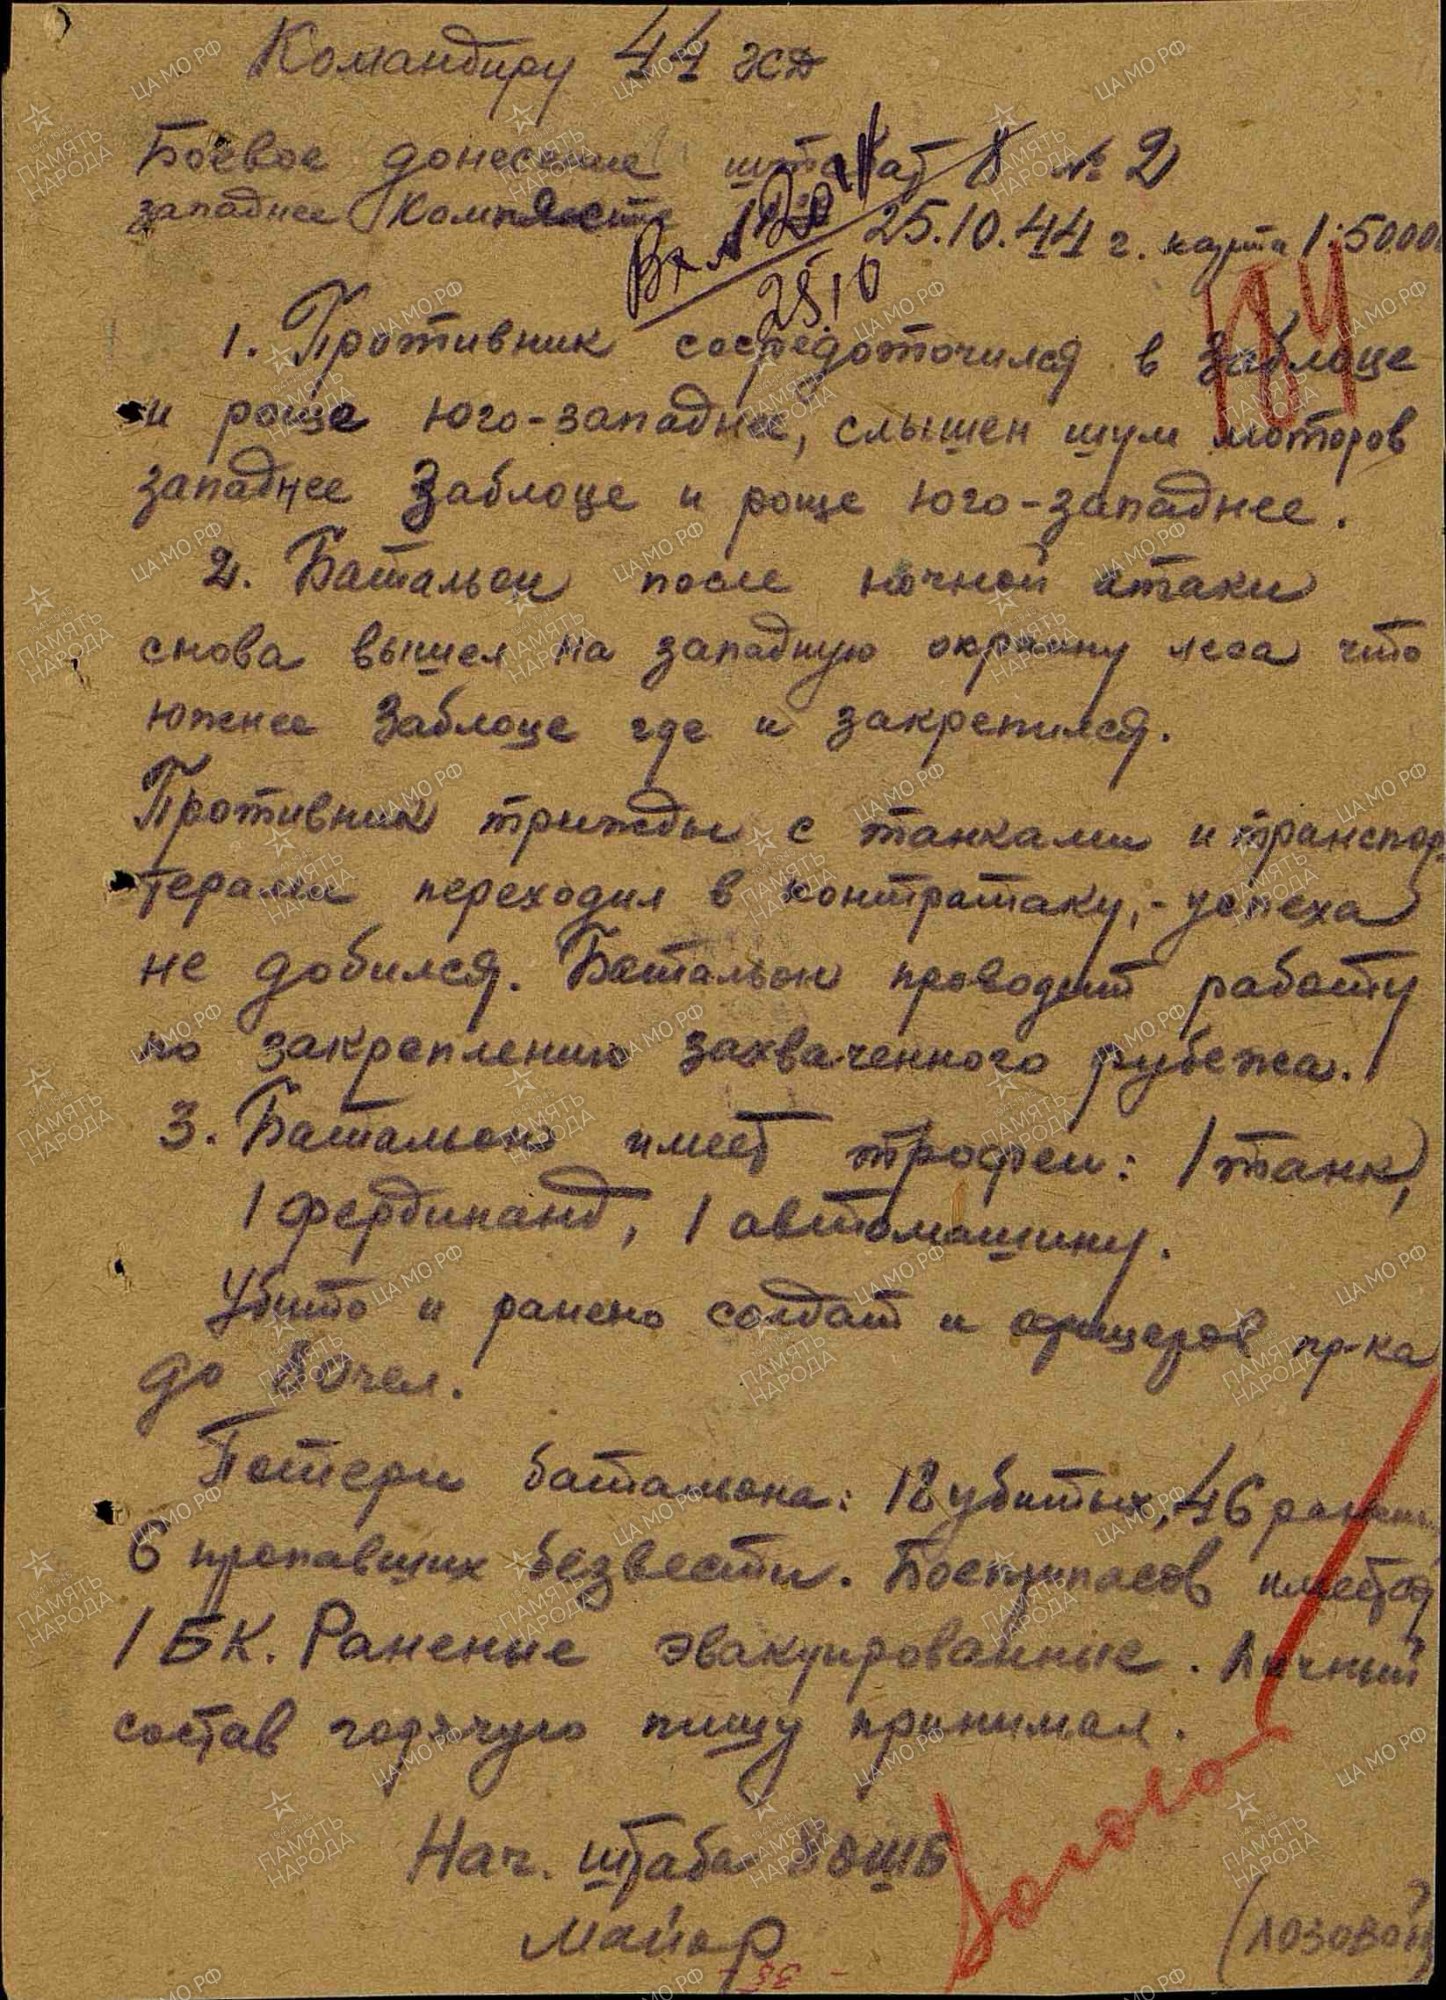 Командиру 44 жсд
Боевое донесение штабат 8 № 2
западнее
Вх № 120
25.10.44 г. карта 1:50.000
25.10
184
1. Противник сосредоточился в Заблоце
и роще юго-западнее, слышен шум моторов
западнее Заблоце и роще юго-западнее.
2. Батальон после ночной атаки
снова вышел на западную окраину леса что
южнее Заблоце где и закрепился.
Противник трижды с танками и транспор-
терами переходил в контратаку, - успеха
не добился. Батальон проводит работу
по закреплению захваченного рубежа.
3. Батальон имеет трофеи: 1 танк,
1 фердинанд, 1 автомашину.
Убито и ранено солдат и офицеров пр-ка
до 80 чел.
Потери батальона: 12 убитых, 46 ранен
6 пропавших безвести. Боеприпасов имеется
1 БК. Раненые эвакуированные. Личный
состав горячую пищу принимал.
Нач. штаба 8 ОШБ
Майор
(Лозовой)